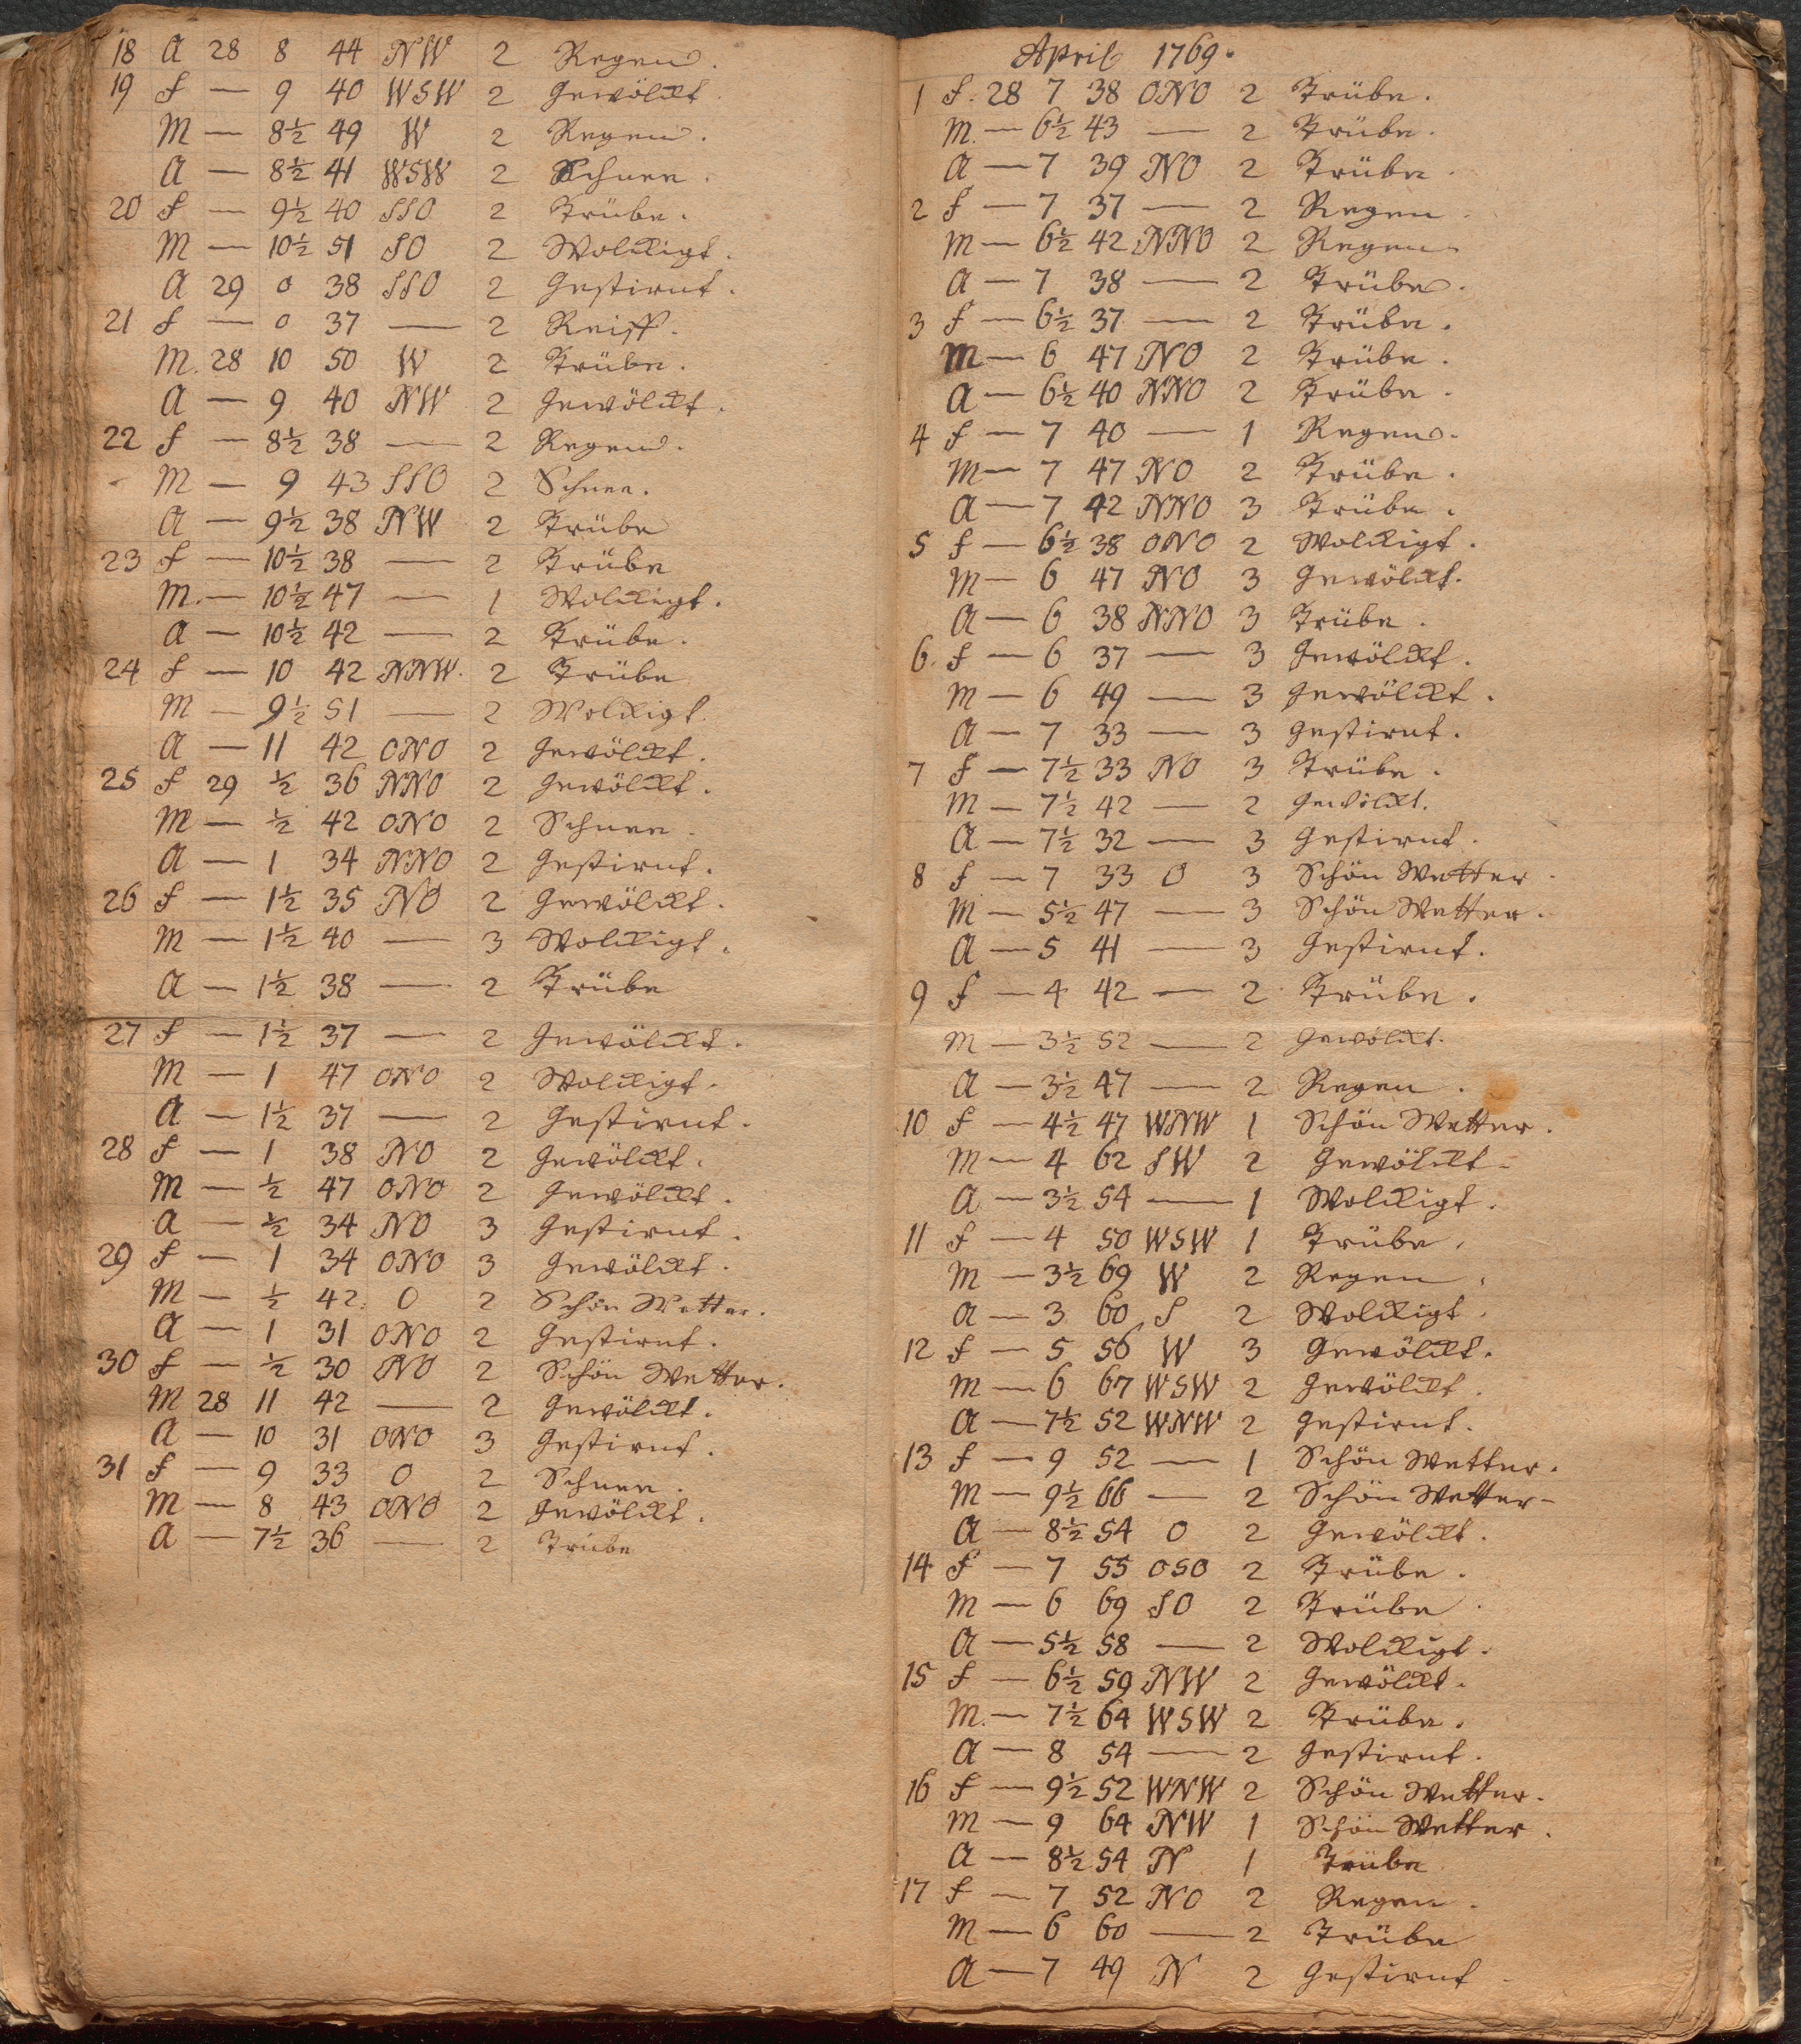 18 A 28 8 44 NW 2 Regen.
19 f — 9 40 WSW 2 Gewölckt.
M — 8½ 49 W 2 Regen.
A — 8½ 41 WSW 2 Schnee.
20 f — 9½ 40 SSO 2 Trübe.
M — 10½ 51 SO 2 Wolckigt.
A 29 0 38 SSO 2 Gestirnt.
21 f — 0 37 — 2 Reiff.
M. 28 10 50 W 2 Trübe.
A — 9 40 NW 2 Gewölckt.
22 f — 8½ 38 — 2 Regen.
M — 9 43 SSO 2 Schnee.
A — 9½ 38 NW 2 Trübe
23 f — 10½ 38 — 2 Trübe
M. — 10½ 47 — 1 Wolckigt.
A — 10½ 42 — 2 Trübe.
24 f — 10 42 NNW. 2 Trübe
M — 9½ 51 — 2 Wolckigt.
A — 11 42 ONO 2 Gewölckt.
25 f 29 ½ 36 NNO 2 Gewölckt.
M — ½ 42 ONO 2 Schnee.
A — 1 34 NNO 2 Gestirnt.
26 f — 1½ 35 NO 2 Gewölckt.
M — 1½ 40 — 3 Wolckigt.
A — 1½ 38 — 2 Trübe
27 f — 1½ 37 — 2 Gewölckt.
M — 1 47 ONO 2 Wolckigt.
A — 1½ 37 — 2 Gestirnt.
28 f — 1 38 NO 2 Gewölckt.
M — ½ 47 ONO 2 Gewölckt.
A — ½ 34 NO 3 Gestirnt.
29 f — 1 34 ONO 3 Gewölckt.
M — ½ 42 O 2 Schön Wetter.
A — 1 31 ONO 2 Gestirnt.
30 f — ½ 30 NO 2 Schön Wetter.
M 28 11 42 — 2 Gewölckt.
A — 10 31 ONO 3 Gestirnt.
31 f — 9 33 O 2 Schnee.
M — 8 43 ONO 2 Gewölckt.
A — 7½ 36 — 2 Trübe
April 1769.
1 f. 28 7 38 ONO 2 Trübe.
M. — 6½ 43 — 2 Trübe.
A — 7 39 NO 2 Trübe.
2 f — 7 37 — 2 Regen
M — 6½ 42 NNO 2 Regen
A — 7 38 — 2 Trübe.
3 f — 6½ 37 — 2 Trübe.
M — 6 47 NO 2 Trübe.
A — 6½ 40 NNO 2 Trübe.
4 f — 7 40 — 1 Regen.
M — 7 47 NO 2 Trübe.
A — 7 42 NNO 3 Trübe.
5 f — 6½ 38 ONO 2 Wolckigt.
M — 6 47 NO 3 Gewölckt.
A — 6 38 NNO 3 Trübe.
6. f — 6 37 — 3 Gewölckt.
M — 6 49 — 3 Gewölckt.
A — 7 33 — 3 Gestirnt.
7 f — 7½ 33 NO 3 Trübe.
M — 7½ 42 — 2 Gewölckt.
A — 7½ 32 — 3 Gestirnt.
8 f — 7 33 O 3 Schön Wetter.
M — 5½ 47 — 3 Schön Wetter.
A — 5 41 — 3 Gestirnt.
9 f — 4 42 — 2 Trübe.
M — 3½ 52 — 2 Gewölckt.
A — 3½ 47 — 2 Regen.
10 f — 4½ 47 WNW 1 Schön Wetter.
M — 4 62 SW 2 Gewölckt.
A — 3½ 54 — 1 Wolckigt.
11 f — 4 50 WSW 1 Trübe.
M — 3½ 69 W 2 Regen.
A — 3 60 S 2 Wolckigt.
12 f — 5 56 W 3 Gewölckt.
M — 6 67 WSW 2 Gewölckt.
A — 7½ 52 WNW 2 Gestirnt.
13 f — 9 52 — 1 Schön Wetter.
M — 9½ 66 — 2 Schön Wetter.
A — 8½ 54 O 2 Gewölckt.
14 f — 7 55 OSO 2 Trübe.
M — 6 69 SO 2 Trübe.
A — 5½ 58 — 2 Wolckigt.
15 f — 6½ 59 NW 2 Gewölckt.
M. — 7½ 64 WSW 2 Trübe.
A — 8 54 — 2 Gestirnt.
16 f — 9½ 52 WNW 2 Schön Wetter.
M — 9 64 NW 1 Schön Wetter.
A — 8½ 54 N 1 Trübe
17 f — 7 52 NO 2 Regen.
M — 6 60 — 2 Trübe
A — 7 49 N 2 Gestirnt